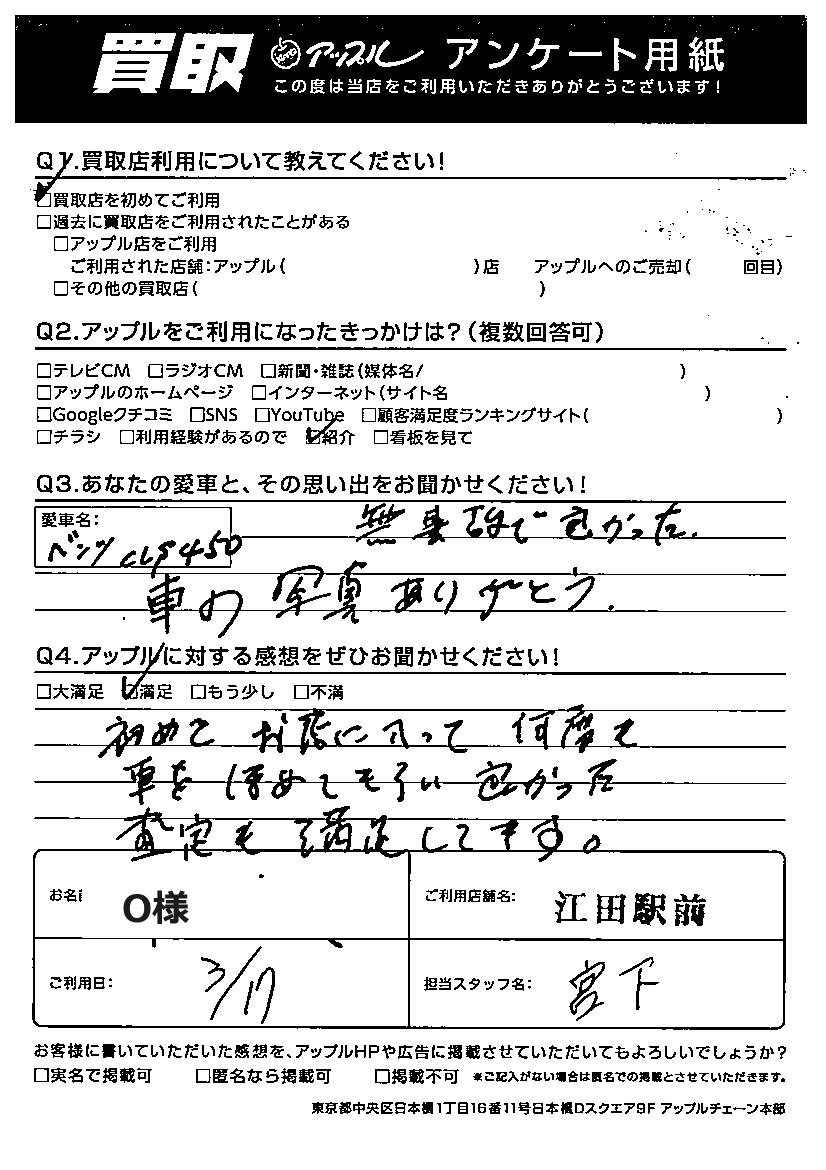 買取 アップル アンケート用紙
この度は当店をご利用いただきありがとうございます!
Q1.買取店利用について教えてください!
☑買取店を初めてご利用
□過去に買取店をご利用されたことがある
□アップル店をご利用
ご利用された店舗:アップル( )店 アップルへのご売却( 回目)
□その他の買取店( )
Q2.アップルをご利用になったきっかけは?(複数回答可)
□テレビCM □ラジオCM □新聞・雑誌(媒体名/ )
□アップルのホームページ □インターネット(サイト名 )
□Googleクチコミ □SNS □YouTube □顧客満足度ランキングサイト( )
□チラシ □利用経験があるので ☑紹介 □看板を見て
Q3.あなたの愛車と、その思い出をお聞かせください!
愛車名:
ベンツ CLS450 無事故で良かった.
車の写真ありがとう.
Q4.アップルに対する感想をぜひお聞かせください!
□大満足 ☑満足 □もう少し □不満
初めてお店に入って何度も
車をほめてもらい良かった
査定も満足してます。
お名前 O様 ご利用店舗名: 江田駅前
ご利用日: 3/17 担当スタッフ名: 宮下
お客様に書いていただいた感想を、アップルHPや広告に掲載させていただいてもよろしいでしょうか?
□実名で掲載可 □匿名なら掲載可 □掲載不可 ※ご記入がない場合は匿名での掲載とさせていただきます。
東京都中央区日本橋1丁目16番11号日本橋Dスクエア9F アップルチェーン本部